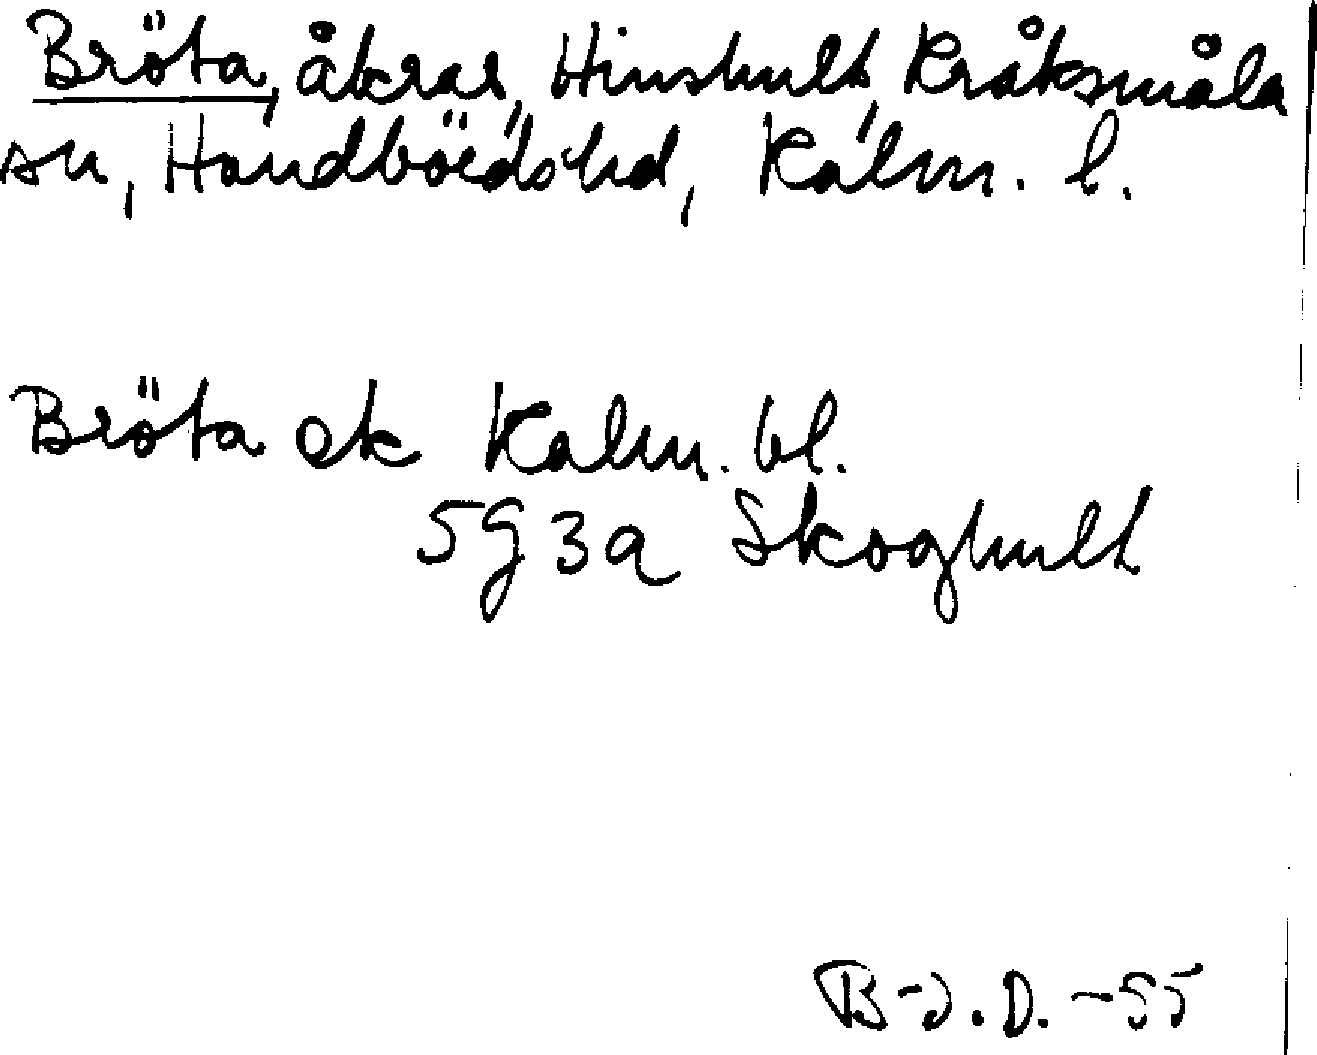 Bröta, åkrar, Hinshult, Kråksmåla
sn, Handbörds hd, Kalm. l.
Bröta ek Kalm. bl.
5G3a Skoghult
B-J.D.-55